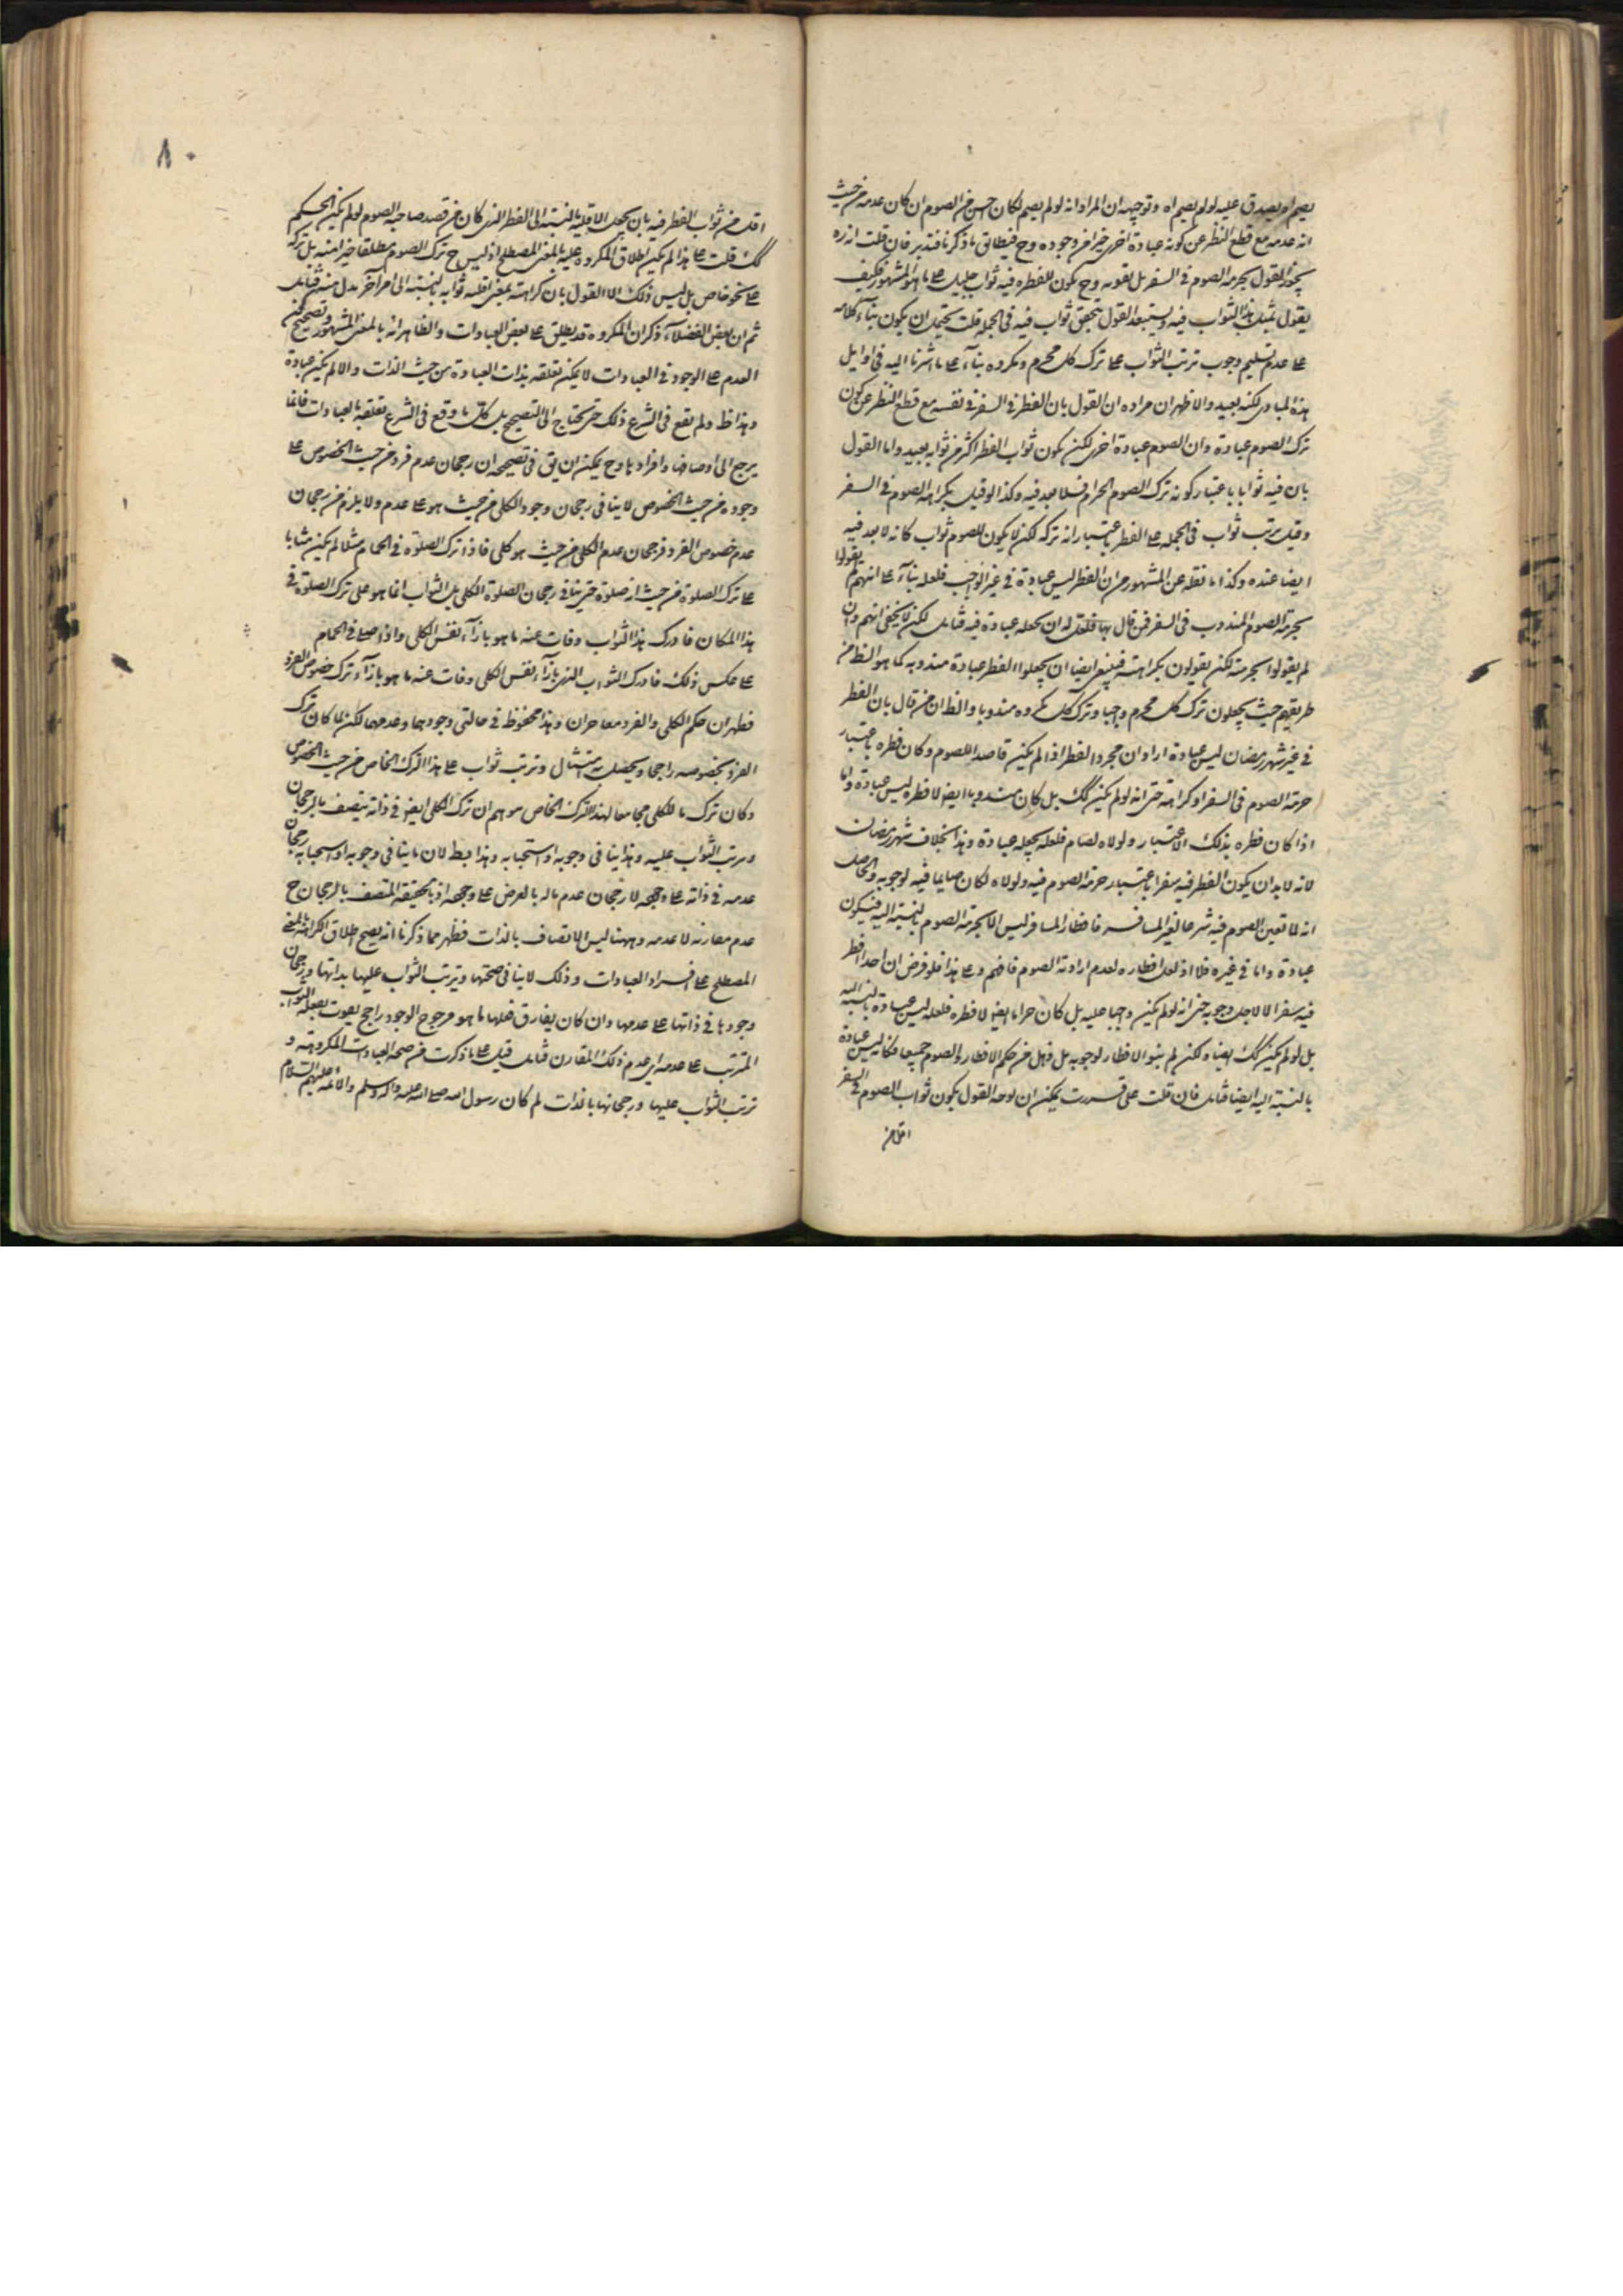 يصم او يصدق عليه لو لم يصم اه وتوجيهه ان المراد انه لو لم يصم لكان حسن من الصوم ان كان عدمه من حيث
انه عدمه مع قطع النظر عن كونه عبادة اخرى خيرا من وجوده وح فيطابق ما ذكرنا فتدبر فان قلت انه ره
يجوز القول بحرمة الصوم في السفر بل يقويه وح يكون للفطر فيه ثواب جليل على ما هو المشهور فكيف
يقول بمثل هذا الثواب فيه ويستبعد القول بتحقق ثواب فيه في الجملة قلت يحتمل ان يكون بناء كلامه
على عدم تسليم وجوب ترتب الثواب على ترك كل محرم ومكروه بناء على ما اشرنا اليه في اوايل
هذه المبادى لكنه بعيد والاظهر ان مراده ان القول بان الفطر في السفر في نفسه مع قطع النظر عن كون
ترك الصوم عبادة وان الصوم عبادة اخرى لكن يكون ثواب الفطر اكثر من ثوابه بعيد واما القول
بان فيه ثوابا باعتبار كونه ترك الصوم الحرام فلا بعد فيه وكذا لو قيل بكراهة الصوم في السفر
وقيل يرتب ثواب في الجملة على الفطر باعتبار انه تركه لكن لا يكون للصوم ثواب كانه لا بعد فيه
ايضا عنده وكذا ما نقله عن المشهور من ان الفطر ليس عبادة في غير الواجب فلعله بناء على انهم لم يقولوا
بحرمة الصوم المندوب في السفر فمن قال بها فلعل له ان يجعله عبادة فيه فتأمل لكن لا يخفى انهم وان
لم يقولوا بحرمته لكن يقولون بكراهته فينبغي ايضا ان يجعلوا الفطر عبادة مندوبة كما هو الظ من
طريقتهم حيث يجعلون ترك كل محرم واجبا وترك كل مكروه مندوبا والظ ان من قال بان الفطر
في غير شهر رمضان ليس عبادة اراد ان مجرد الفطر اذا لم يكن قاصدا للصوم وكان فطره باعتبار
حرمة الصوم في السفر او كراهته حتى انه لو لم يكن كك بل كان مندوبا ايض لافطره ليس عبادة واما
اذا كان فطره بذلك الاعتبار ولولاه لصام فلعله يجعله عبادة وهذا بخلاف شهر رمضان
لانه لا بد ان يكون الفطر فيه سفرا باعتبار حرمة الصوم فيه ولولاه لكان صايما فيه لوجوبه والحاصل
انه لما تعين الصوم فيه شرعا لغير المسافر فافطار المسافر ليس الا لحرمة الصوم بالنسبة اليه فيكون
عبادة واما في غيره فلا اذ لعل افطاره لعدم ارادته الصوم فافهم وعلى هذا فلو فرض ان احدا افطر
فيه سفرا لا لاجل وجوبه حتى انه لو لم يكن واجبا عليه بل كان حراما ايض لافطره فلعله ليس عبادة بالنسبة اليه
بل لو لم يكن كك ايضا ولكن لم ينو الافطار لوجوبه بل ذهل عن حكم الافطار والصوم جميعا فكانه ليس عبادة
بالنسبة اليه ايضا فتأمل فان قلت على ما قررت يمكن ان يوجه القول بكون ثواب الصوم في السفر
اقل من
اقل من ثواب الفطر فيه بان يجعل الاقلية بالنسبة الى الفطر الذي كان من قصد صاحبه الصوم لو لم يكن الحكم
كك قلت على هذا لم يكن اطلاق المكروه عليه بالمعنى المصطلح اذ ليس ح ترك الصوم مطلقا خيرا منه بل تركه
على نحو خاص بل ليس ذلك الا القول بان كراهته بمعنى اقلية ثوابه بالنسبة الى امر آخر بدل منه فتأمل
ثم ان بعض الفضلاء ذكر ان المكروه قد يطلق على بعض العبادات والظاهر انه بالمعنى المشهور وتصحيح كون
العدم على الوجود في العبادات لا يمكن تعلقه بذات العبادة من حيث الذات والا لم يكن عبادة
وهذا ظ ولم يقع في الشرع ذلك حتى يحتاج الى التصحيح بل كل ما وقع في الشرع تعلقه بالعبادات فانما
يرجع الى اوصافها وافرادها وح يمكن ان يق في تصحيحه ان رجحان عدم فرد من حيث الخصوص على
وجوده من حيث الخصوص لا ينافي رجحان وجود الكلي من حيث هو على عدمه ولا يلزم من رجحان
عدم خصوص الفرد رجحان عدم الكلي من حيث هو كلي فاذا ترك الصلوة في الحمام مثلا لم يكن مثابا
على ترك الصلوة من حيث انه صلوة حتى ينافي رجحان الصلوة الكلي بل الثواب انما هو على ترك الصلوة في
هذا المكان فادرك هذا الثواب وفات عنه ما هو بازاء نفس الكلي واذا صلى في الحمام
على عكس ذلك فادرك الثواب الذي بازاء نفس الكلي وفات عنه ما هو بازاء ترك خصوص الفرد
فظهر ان حكم الكلي والفرد معا حران وهذا محفوظ في حالتي وجودهما وعدمهما لكن لما كان ترك
الفرد بخصوصه راجحا ويحصل به امتثال وترتب ثواب على هذا الترك الخاص من حيث الخصوص
وكان ترك ما للكلي مجامعا لهذا الترك الخاص موهم ان ترك الكلي ايض في ذاته يتصف بالرجحان
وترتب الثواب عليه وهذا ينافي وجوبه او استحبابه وهذا بط لان ما ينافي وجوبه او استحبابه رجحان
عدمه في ذاته على وجهه لا رجحان عدم ماله بالعرض على وجهه اذ بالحقيقة المتصف بالرجحان ح
عدم مقارنه لا عدمه وههنا ليس الاتصاف بالذات فظهر مما ذكرنا انه يصح اطلاق الكراهة بالمعنى
المصطلح على افراد العبادات وذلك لا ينافي صحتها وترتب الثواب عليها بذاتها ورجحان
وجودها في ذاتها على عدمها وان كان يقارن فعلها ما هو مرجوح الوجود راجح يفوت بفعله الثواب
المترتب على عدمه اي عدم ذلك المقارن فتأمل قيل على ما ذكرت من صحة العبادات المكروهة و
ترتب الثواب عليها ورجحانها بالذات لم كان رسول الله صلى الله عليه وآله وسلم والائمة عليهم السلام
٨٠